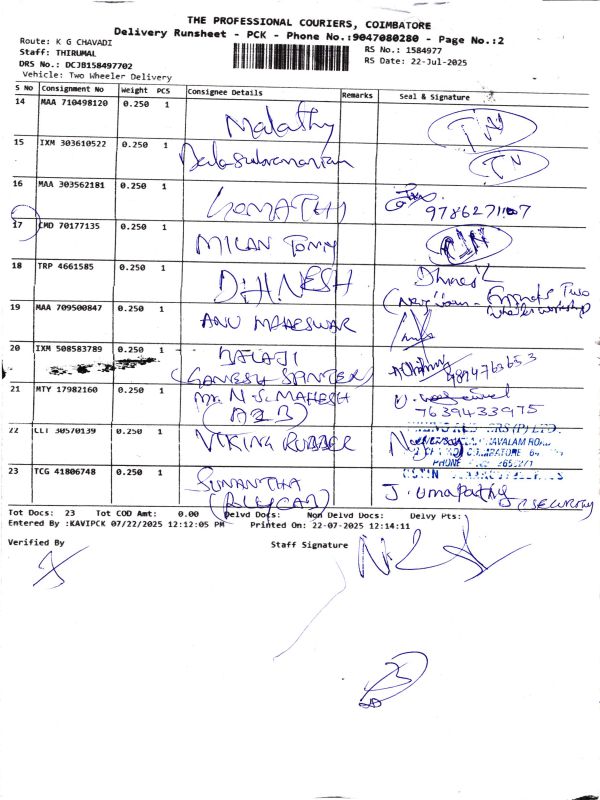 THE PROFESSIONAL COURIERS, COIMBATORE
Delivery Runsheet - PCK - Phone No.:9047080280 - Page No.:2
Route: K G CHAVADI
RS No.: 1584977
Staff: THIRUMAL
RS Date: 22-Jul-2025
DRS No.: DCJB158497702
Vehicle: Two Wheeler Delivery
S No Consignment No Weight PCS Consignee Details Remarks Seal & Signature
14 MAA 710498120 0.250 1 Malathy
15 IXM 303610522 0.250 1 Balasubramaniam
16 MAA 303562181 0.250 1 GOMATHY 9786271107
17 CMD 70177135 0.250 1 MILAN TOMY
18 TRP 4661585 0.250 1 DHINESH Dhinesh
Friends Two
wheeler workshop
19 MAA 709500847 0.250 1 ANU MAHESWAR
20 IXM 508583789 0.250 1 BALAJI
(GANESH SPINTEX) 9894763653
21 MTY 17982160 0.250 1 Mr. N.S. MAHESH
7639433975
22 CLT 30570139 0.250 1 VIKING RUBBER
PHONE
23 TCG 41806748 0.250 1 SUMANTHA J. Umapathy
Tot Docs: 23 Tot COD Amt: 0.00 Delvd Docs: Non Delvd Docs: Delvy Pts:
Entered By :KAVIPCK 07/22/2025 12:12:05 PM Printed On: 22-07-2025 12:14:11
Verified By Staff Signature